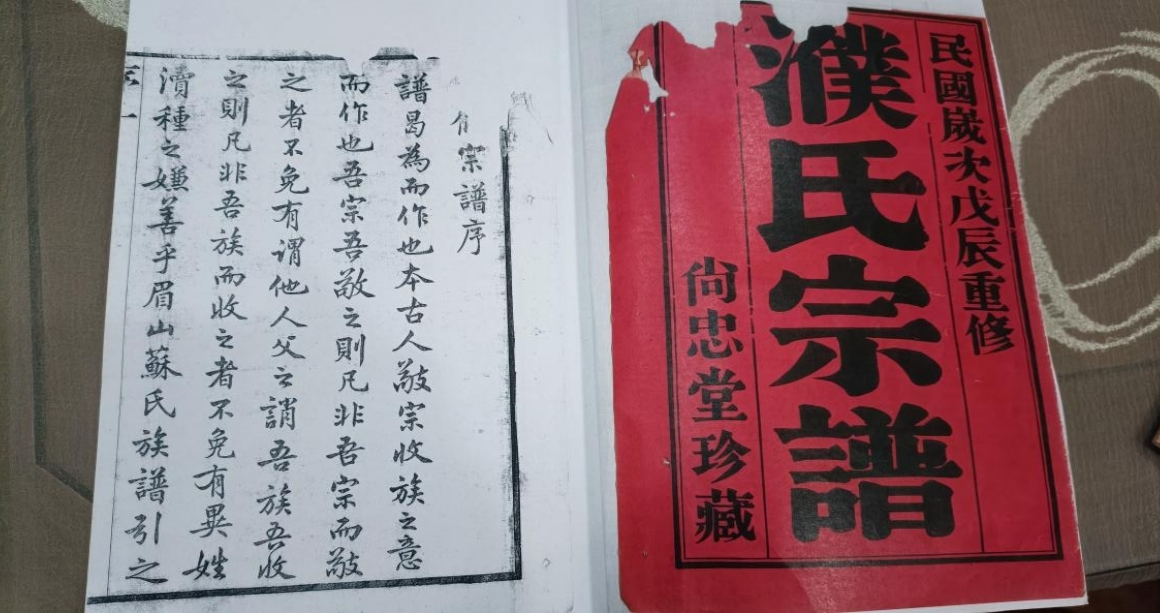 民國歲次戊辰重修
濮氏宗譜
尙忠堂珍藏
宗譜序
譜曷為而作也本古人敬宗收族之意
而作也吾宗吾敬之則凡非吾宗而敬
之者不免有謂他人父之誚吾族吾收
之則凡非吾族而收之者不免有異姓
瀆種之嫌善乎眉山蘇氏族譜引之
一